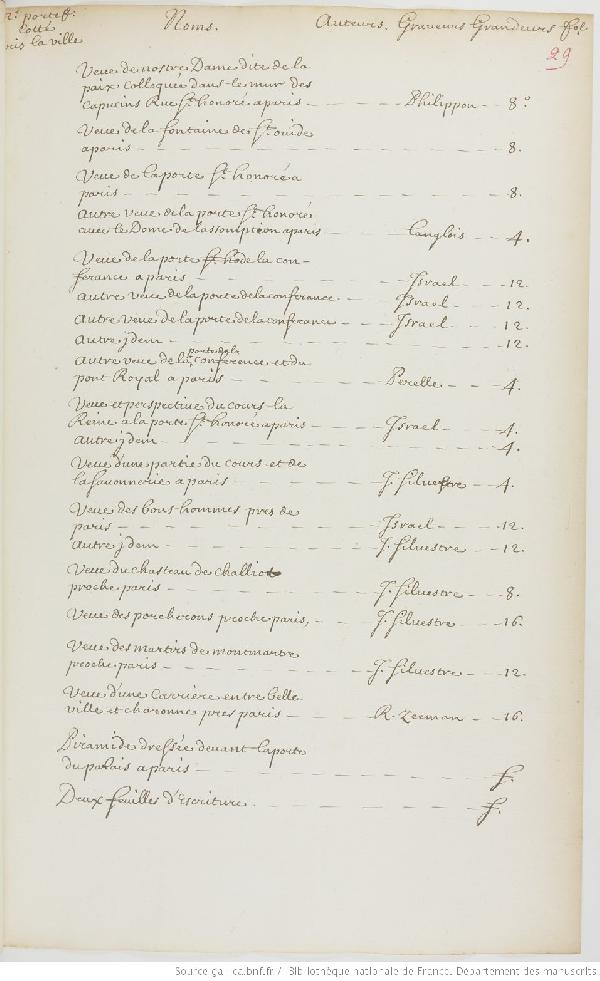 2e. portef.
cotté
paris la ville
Noms. Auteurs. Graveurs Grandeurs fol.
29
Veue de nostre Dame dite de la
paix Colloquée dans le mur des
Capucins Rue St. honoré a paris — Philippon — 8.o
Veue de la fontaine de St. ovide
a paris — 8.
Veue de la porte St. honoré a
paris — 8.
Autre Veue de la porte St. honoré
avec le Dome de lassomption a paris — Langlois — 4.
Veue de la porte St. ho de la con-
ferance a paris — Israel — 12.
Autre veue de la porte de la conferance — Israel — 12.
Autre Veue de la porte de la conferance — Israel — 12.
Autre jdem — 12.
Autre veue de la porte de la Conference et du
pont Royal a paris — Perelle — 4.
Veue et perspective du cours la
Reine a la porte St. honoré a paris — Israel — 4.
Autre jdem — 4.
Veue d'une partie du cours et de
la savonnerie a paris — J. Silvestre — 4.
Veue des bons hommes pres de
paris — Israel — 12.
Autre jdem — J. Silvestre — 12.
Veue du chasteau de challiot
proche paris — J. Silvestre — 8.
Veue des porcherons proche paris, — J. Silvestre — 16.
Veue des martirs de montmartre
proche paris — J. Silvestre — 12.
Veue d'une Carriere entre belle
ville et charonne pres paris — R. zeeman — 16.
Piramide dressée devant la porte
du palais a paris — f.
Deux feuilles d'Escriture. — f.
Source gallica.bnf.fr / Bibliothèque nationale de France. Département des manuscrits.